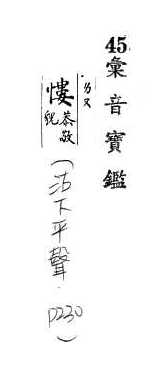 45.彙音寶鑑
ㄌㄡ
慺恭敬貌
(沽下平聲.P230)